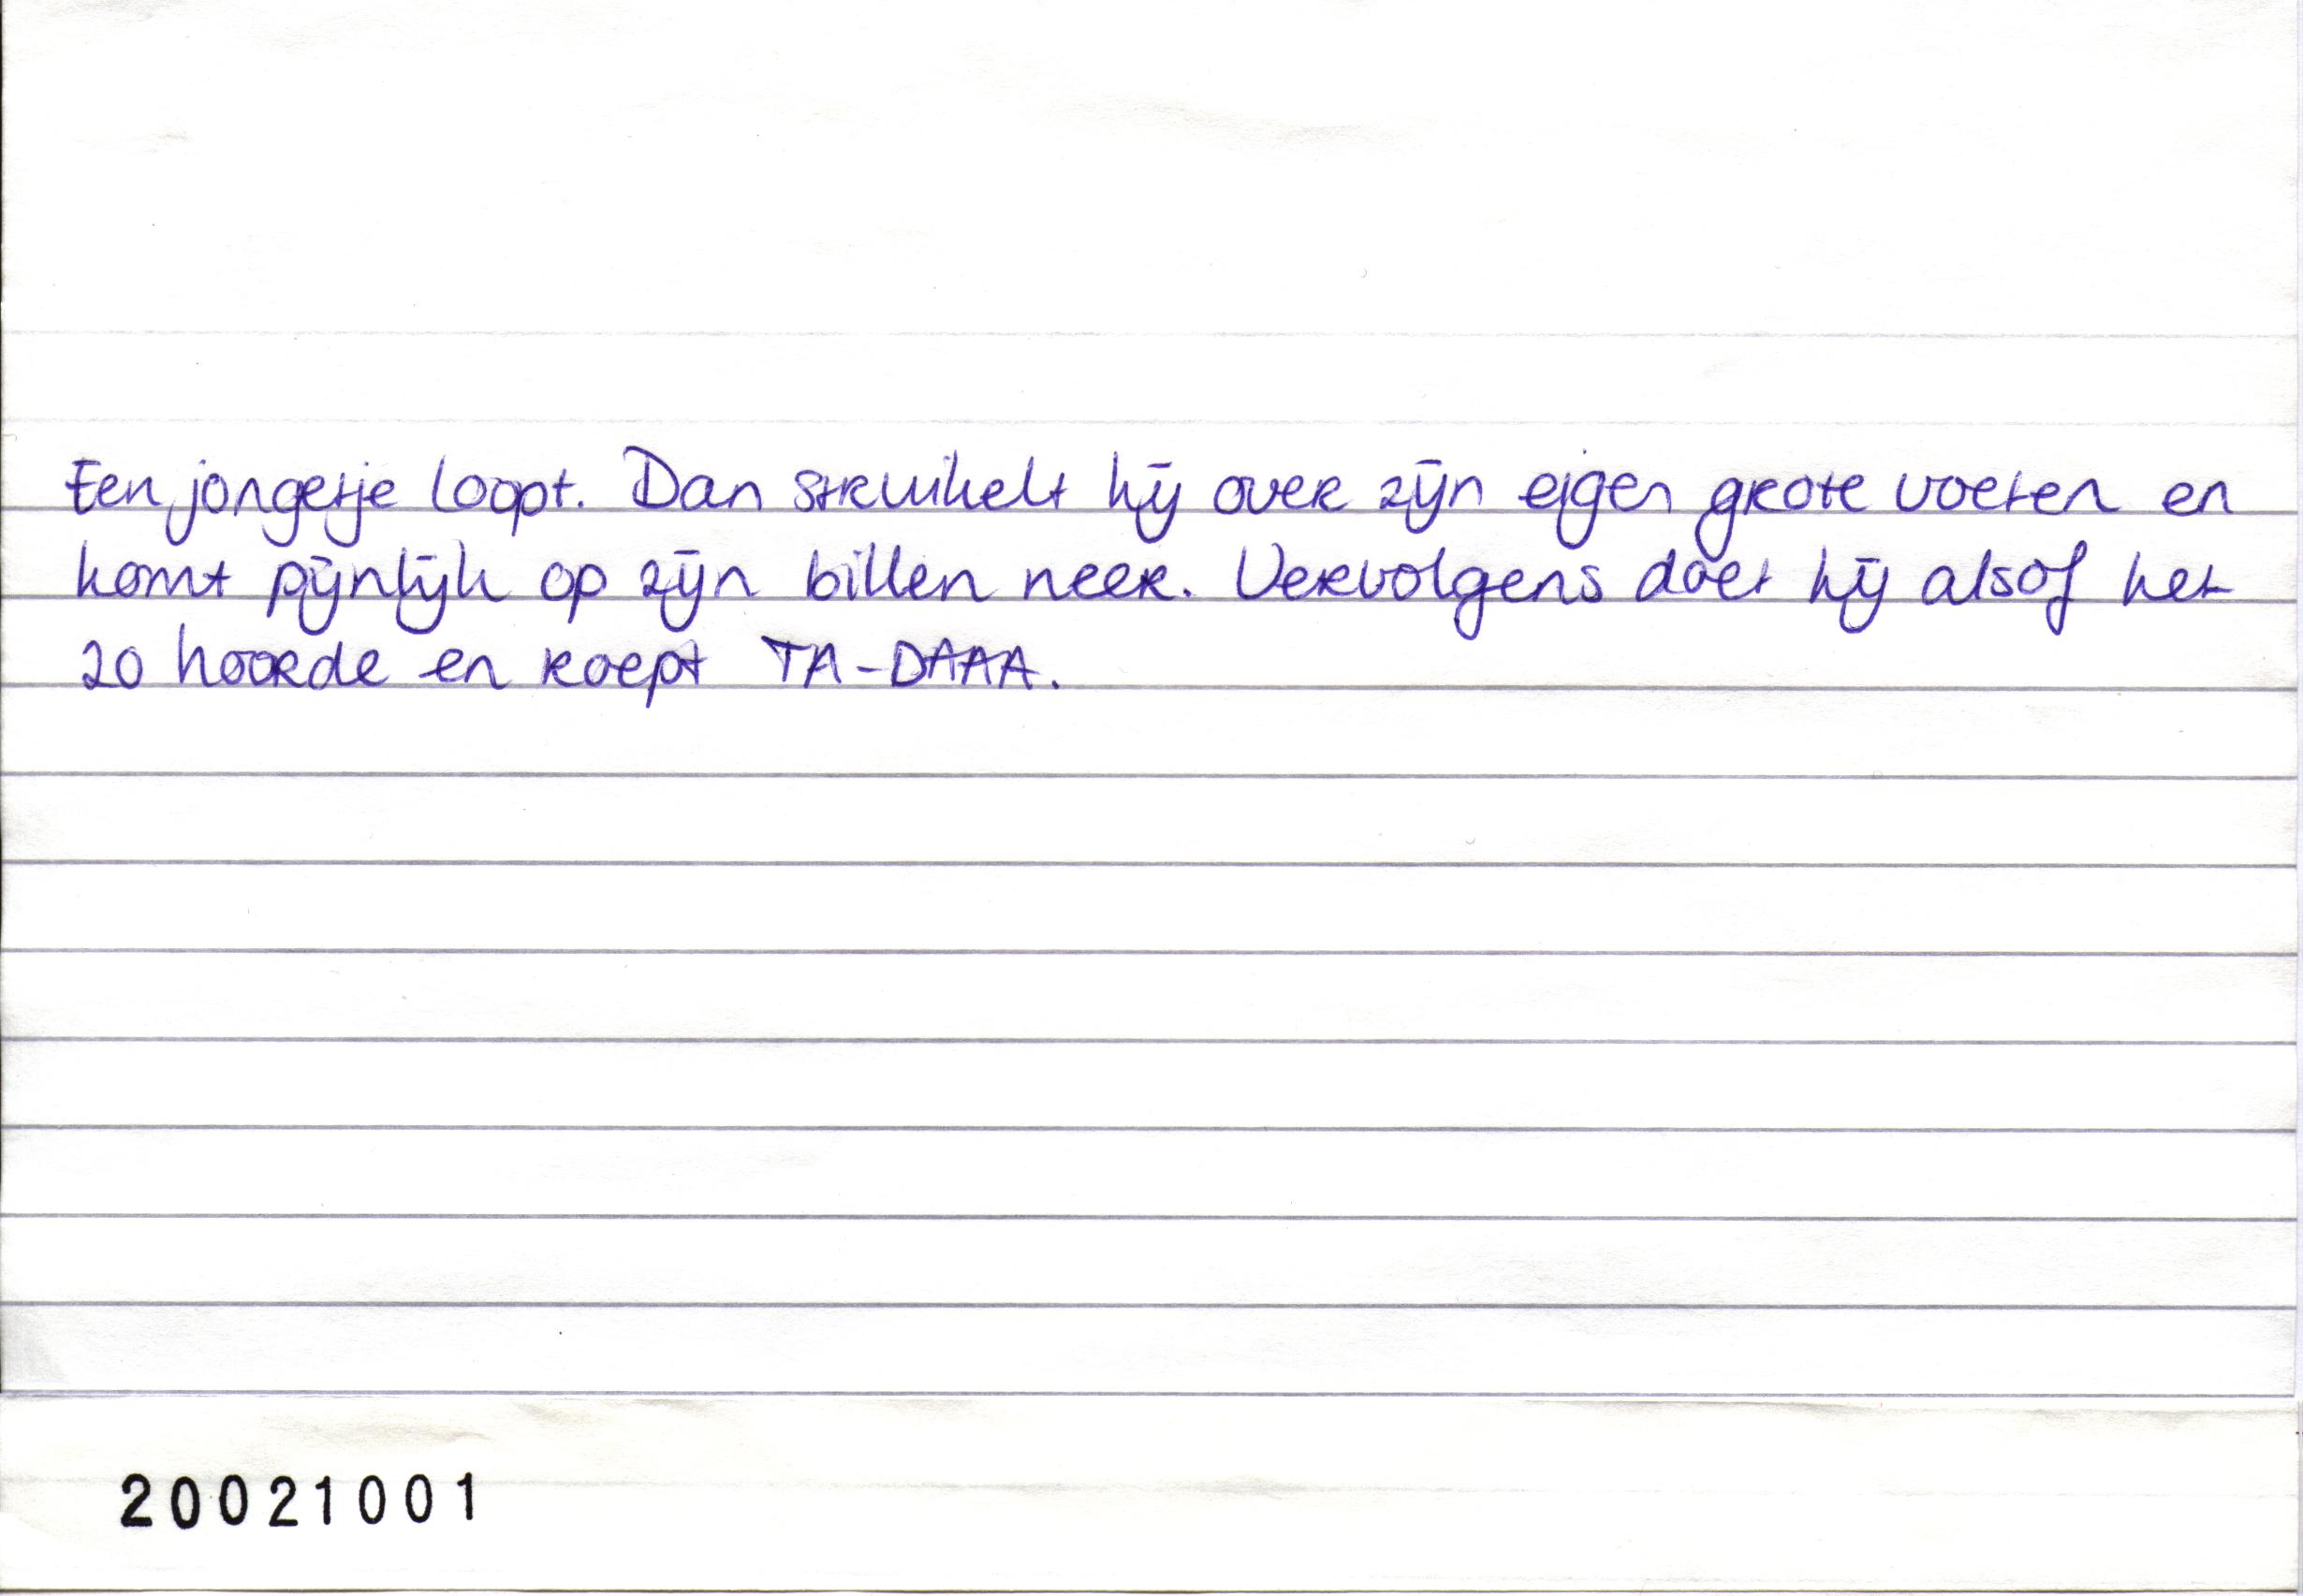 Een jongetje loopt. Dan struikelt hij over zijn eigen grote voeten en
komt pijnlijk op zijn billen neer. Vervolgens doet hij alsof het
zo hoorde en roept TA-DAAA.
20021001